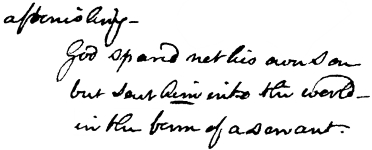 astonishing–
God spared not his own son
but sent him into the world–
in the form of a servant.